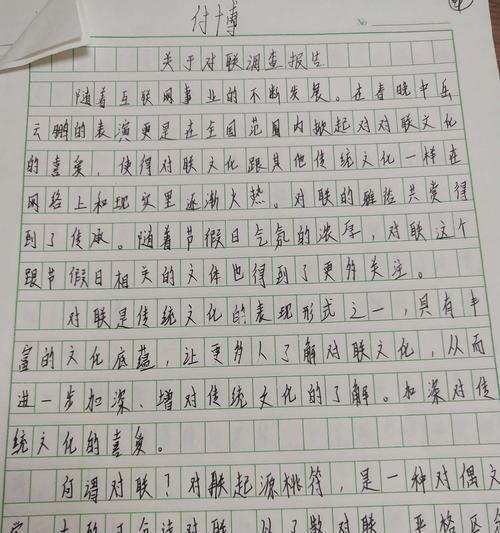 付博
№
关于对联调查报告
随着互联网事业的不断发展。在春晚中岳
云鹏的表演更是在全国范围内掀起对对联文化
的喜爱，使得对联文化跟其他传统文化一样在
网络上和现实里逐渐火热。对联的雅俗共赏得
到了传承。随着节假日气氛的浓厚，对联这个
跟节假日相关的文体也得到了更多关注。
对联是传统文化的表现形式之一，具有丰
富的文化底蕴，让更多人了解对联文化，从而
进一步加深、增对传统文化的了解。加深对传
统文化的喜爱。
何谓对联？对联起源桃符，是一种对偶文